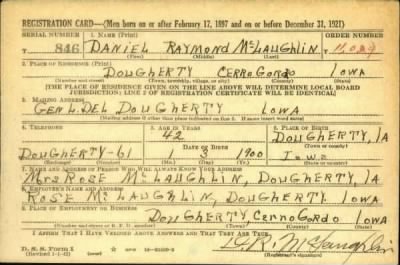 REGISTRATION CARD—(Men born on or after February 17, 1897 and on or before December 31, 1921)
SERIAL NUMBER 1. NAME (Print) ORDER NUMBER
846 DANIEL RAYMOND McLAUGHLIN
(First) (Middle) (Last)
2. PLACE OF RESIDENCE (Print)
DOUGHERTY CERRO GORDO IOWA
(Number and street) (Town, township, village, or city) (County) (State)
[THE PLACE OF RESIDENCE GIVEN ON THE LINE ABOVE WILL DETERMINE LOCAL BOARD
JURISDICTION; LINE 2 OF REGISTRATION CERTIFICATE WILL BE IDENTICAL]
3. MAILING ADDRESS
GEN. DEL DOUGHERTY IOWA
(Mailing address if other than place indicated on line 2. If same insert word same)
4. TELEPHONE 5. AGE IN YEARS 6. PLACE OF BIRTH
42 DOUGHERTY, IA
DATE OF BIRTH
DOUGHERTY-61 3 1900
(Exchange) (Number) (Mo.) (Day) (Yr.) (State or country)
7. NAME AND ADDRESS OF PERSON WHO WILL ALWAYS KNOW YOUR ADDRESS
MRS ROSE McLAUGHLIN, DOUGHERTY, IA
8. EMPLOYER'S NAME AND ADDRESS
ROSE McLAUGHLIN, DOUGHERTY, IOWA
9. PLACE OF EMPLOYMENT OR BUSINESS
DOUGHERTY, CERRO GORDO IOWA
(Number and street or R. F. D. number) (Town) (County) (State)
I AFFIRM THAT I HAVE VERIFIED ABOVE ANSWERS AND THAT THEY ARE TRUE.
D. S. S. Form 1
D.R. McLaughlin
(Registrant's signature)